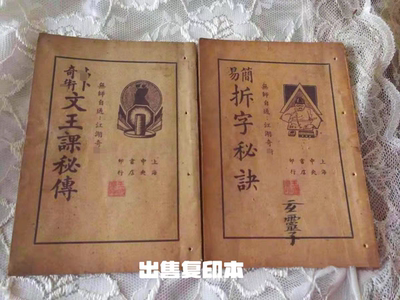 占卜
奇術
文王課秘傳
無師自通：江湖奇
上海
中央
書店
印行
簡易
拆字秘訣
無師自通：江湖奇
上海
中央
書店
印行
玄靈子
出售复印本